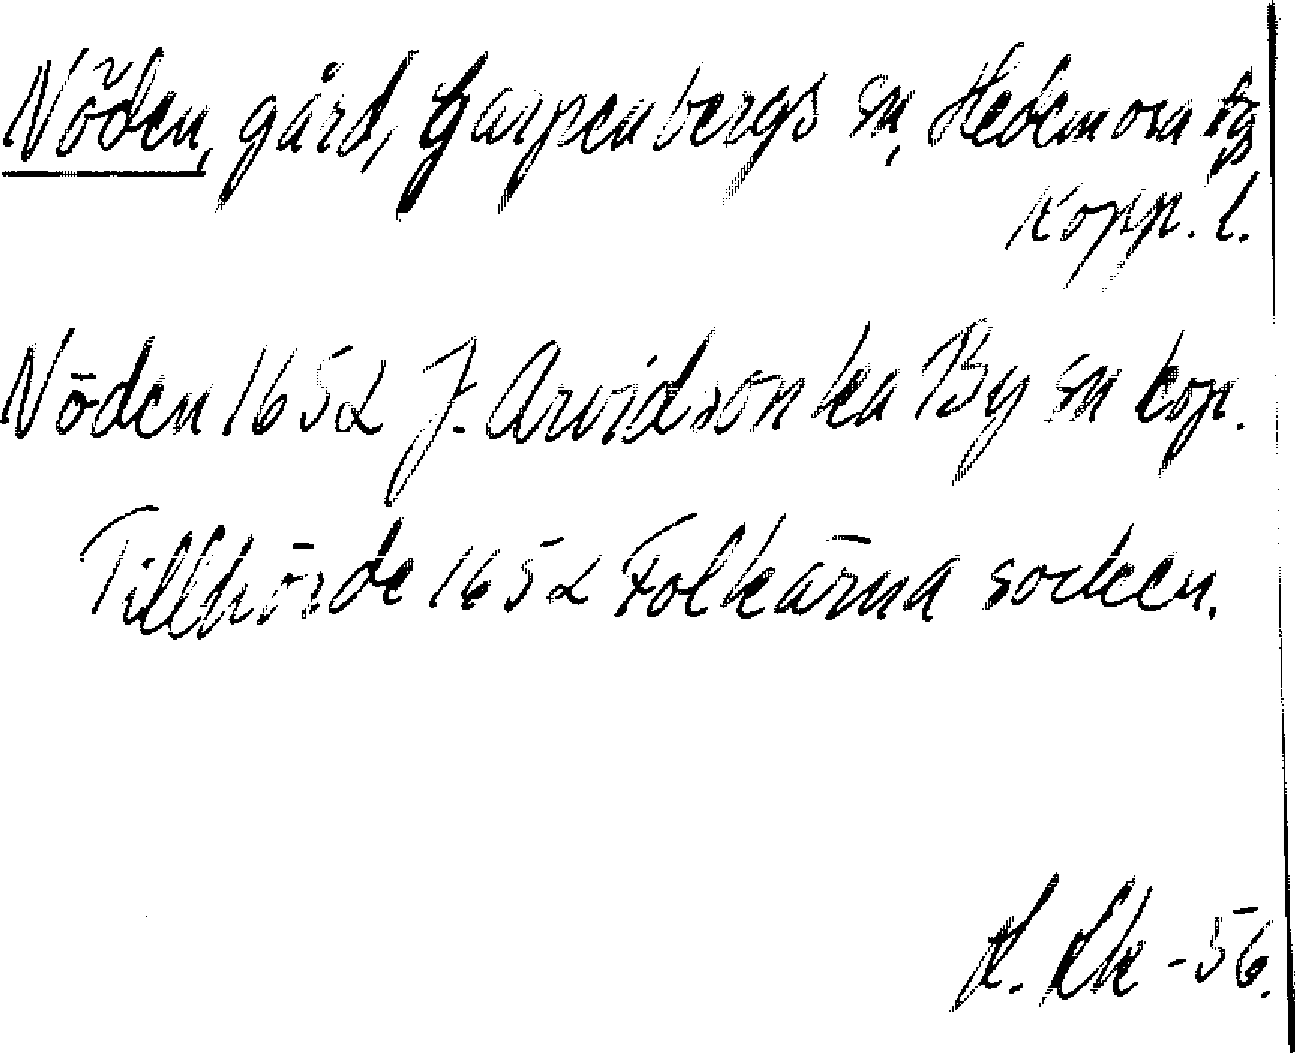 Nöden, gård, Garpenbergs sn, Hedemora tg
Kopp. l.
Nöden 1652 J. Arvidson ka By sn kop.
Tillhörde 1652 Folkärna socken.
-56.